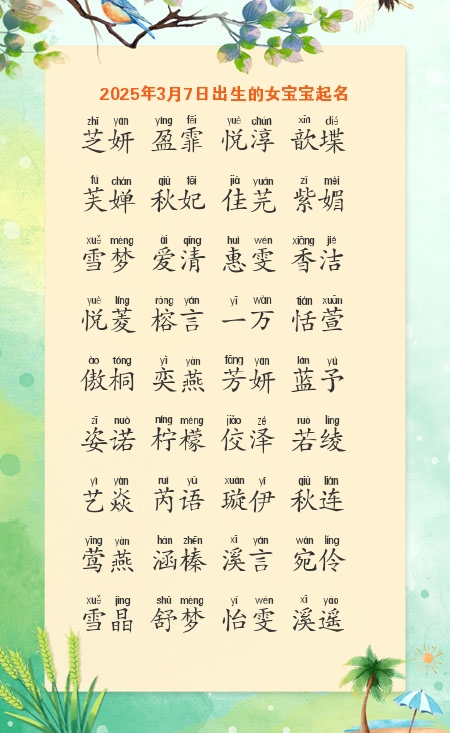 2025年3月7日出生的女宝宝起名
zhī yán yíng fēi yuè chún xīn dié
芝妍 盈霏 悦淳 歆堞
fú chán qiū fēi jiā yuán zǐ mèi
芙婵 秋妃 佳芫 紫媚
xuě mèng ài qīng huì wén xiāng jié
雪梦 爱清 惠雯 香洁
yuè líng róng yán yī wàn tián xuān
悦菱 榕言 一万 恬萱
ào tóng yì yàn fāng yán lán yǔ
傲桐 奕燕 芳妍 蓝予
zī nuò níng méng jiǎo zé ruò líng
姿诺 柠檬 佼泽 若绫
yì yàn ruì yǔ xuán yī qiū lián
艺焱 芮语 璇伊 秋连
yīng yàn hán zhēn xī yán wǎn líng
莺燕 涵榛 溪言 宛伶
xuě jīng shū mèng yí wén xī yáo
雪晶 舒梦 怡雯 溪遥